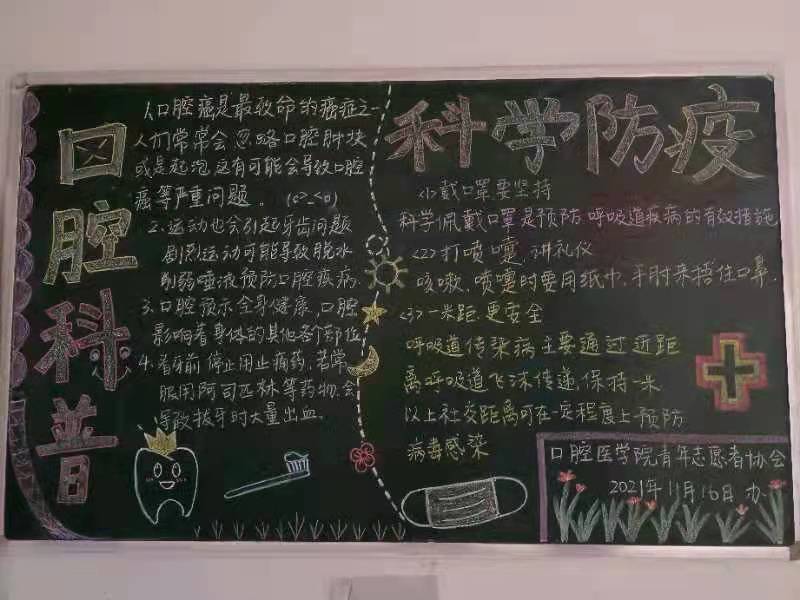 口腔科普
1.口腔癌是最致命的癌症之一
人们常常会忽略口腔肿块
或是起泡,这有可能会导致口腔
癌等严重问题。
2.运动也会引起牙齿问题
剧烈运动可能导致脱水
削弱唾液预防口腔疾病
3.口腔预示全身健康,口腔
影响着身体的其他各个部位
4.看牙前停止用止痛药,若常
服用阿司匹林等药物,会
导致拔牙时大量出血.
科学防疫
<1>戴口罩要坚持
科学佩戴口罩是预防呼吸道疾病的有效措施
<2>打喷嚏,讲礼仪
咳嗽、喷嚏时要用纸巾、手肘来捂住口鼻.
<3>一米距,更安全
呼吸道传染病主要通过近距
离呼吸道飞沫传递,保持一米
以上社交距离可在一定程度上预防
病毒感染
口腔医学院青年志愿者协会
2021年11月16日 办